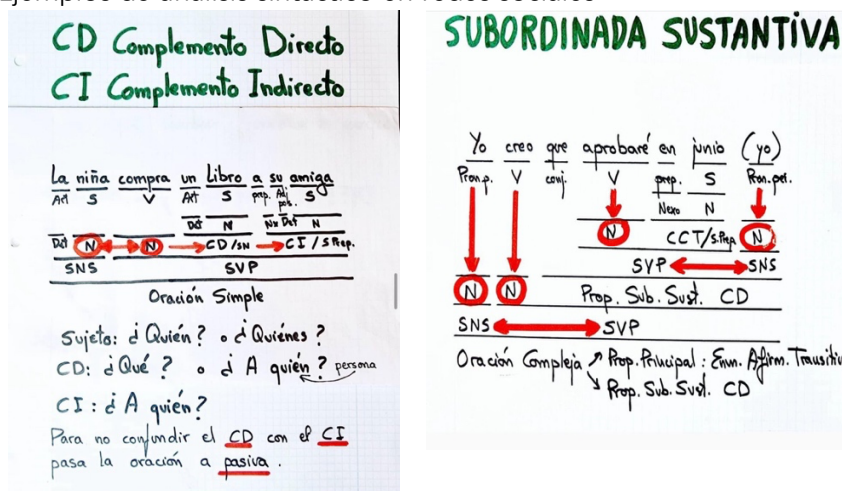 Ejemplos de análisis sintáctico en redes sociales
CD Complemento Directo
CI Complemento Indirecto
La niña compra un Libro a su amiga
Art S V Art S prep. Adj pos. S
Det N Nx Det N
Det N N CD/SN CI/S.Prep.
SNS SVP
Oración Simple
Sujeto: ¿Quién? o ¿Quiénes?
CD: ¿Qué? o ¿A quién? persona
CI: ¿A quién?
Para no confundir el CD con el CI
pasa la oración a pasiva.
SUBORDINADA SUSTANTIVA
Yo creo que aprobaré en junio (yo)
Pron.p. V conj. V prep. S Pron.per.
Nexo N
N CCT/S.Prep. N
SVP SNS
N N Prop. Sub. Sust. CD
SNS SVP
Oración Compleja Prop. Principal: Enun. Afirm.
Prop. Sub. Sust. CD